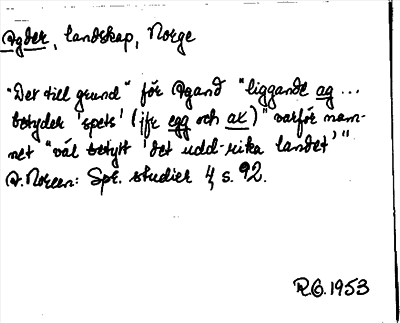 Agder, landskap, Norge
"Det till grund" för Agand "liggande ag ...
betyder 'spets' (jfr egg och ax)" varför nam-
net "väl betytt 'det udd-rika landet'"
A. Noreen: Spr. studier 4 s. 92.
R.G. 1953